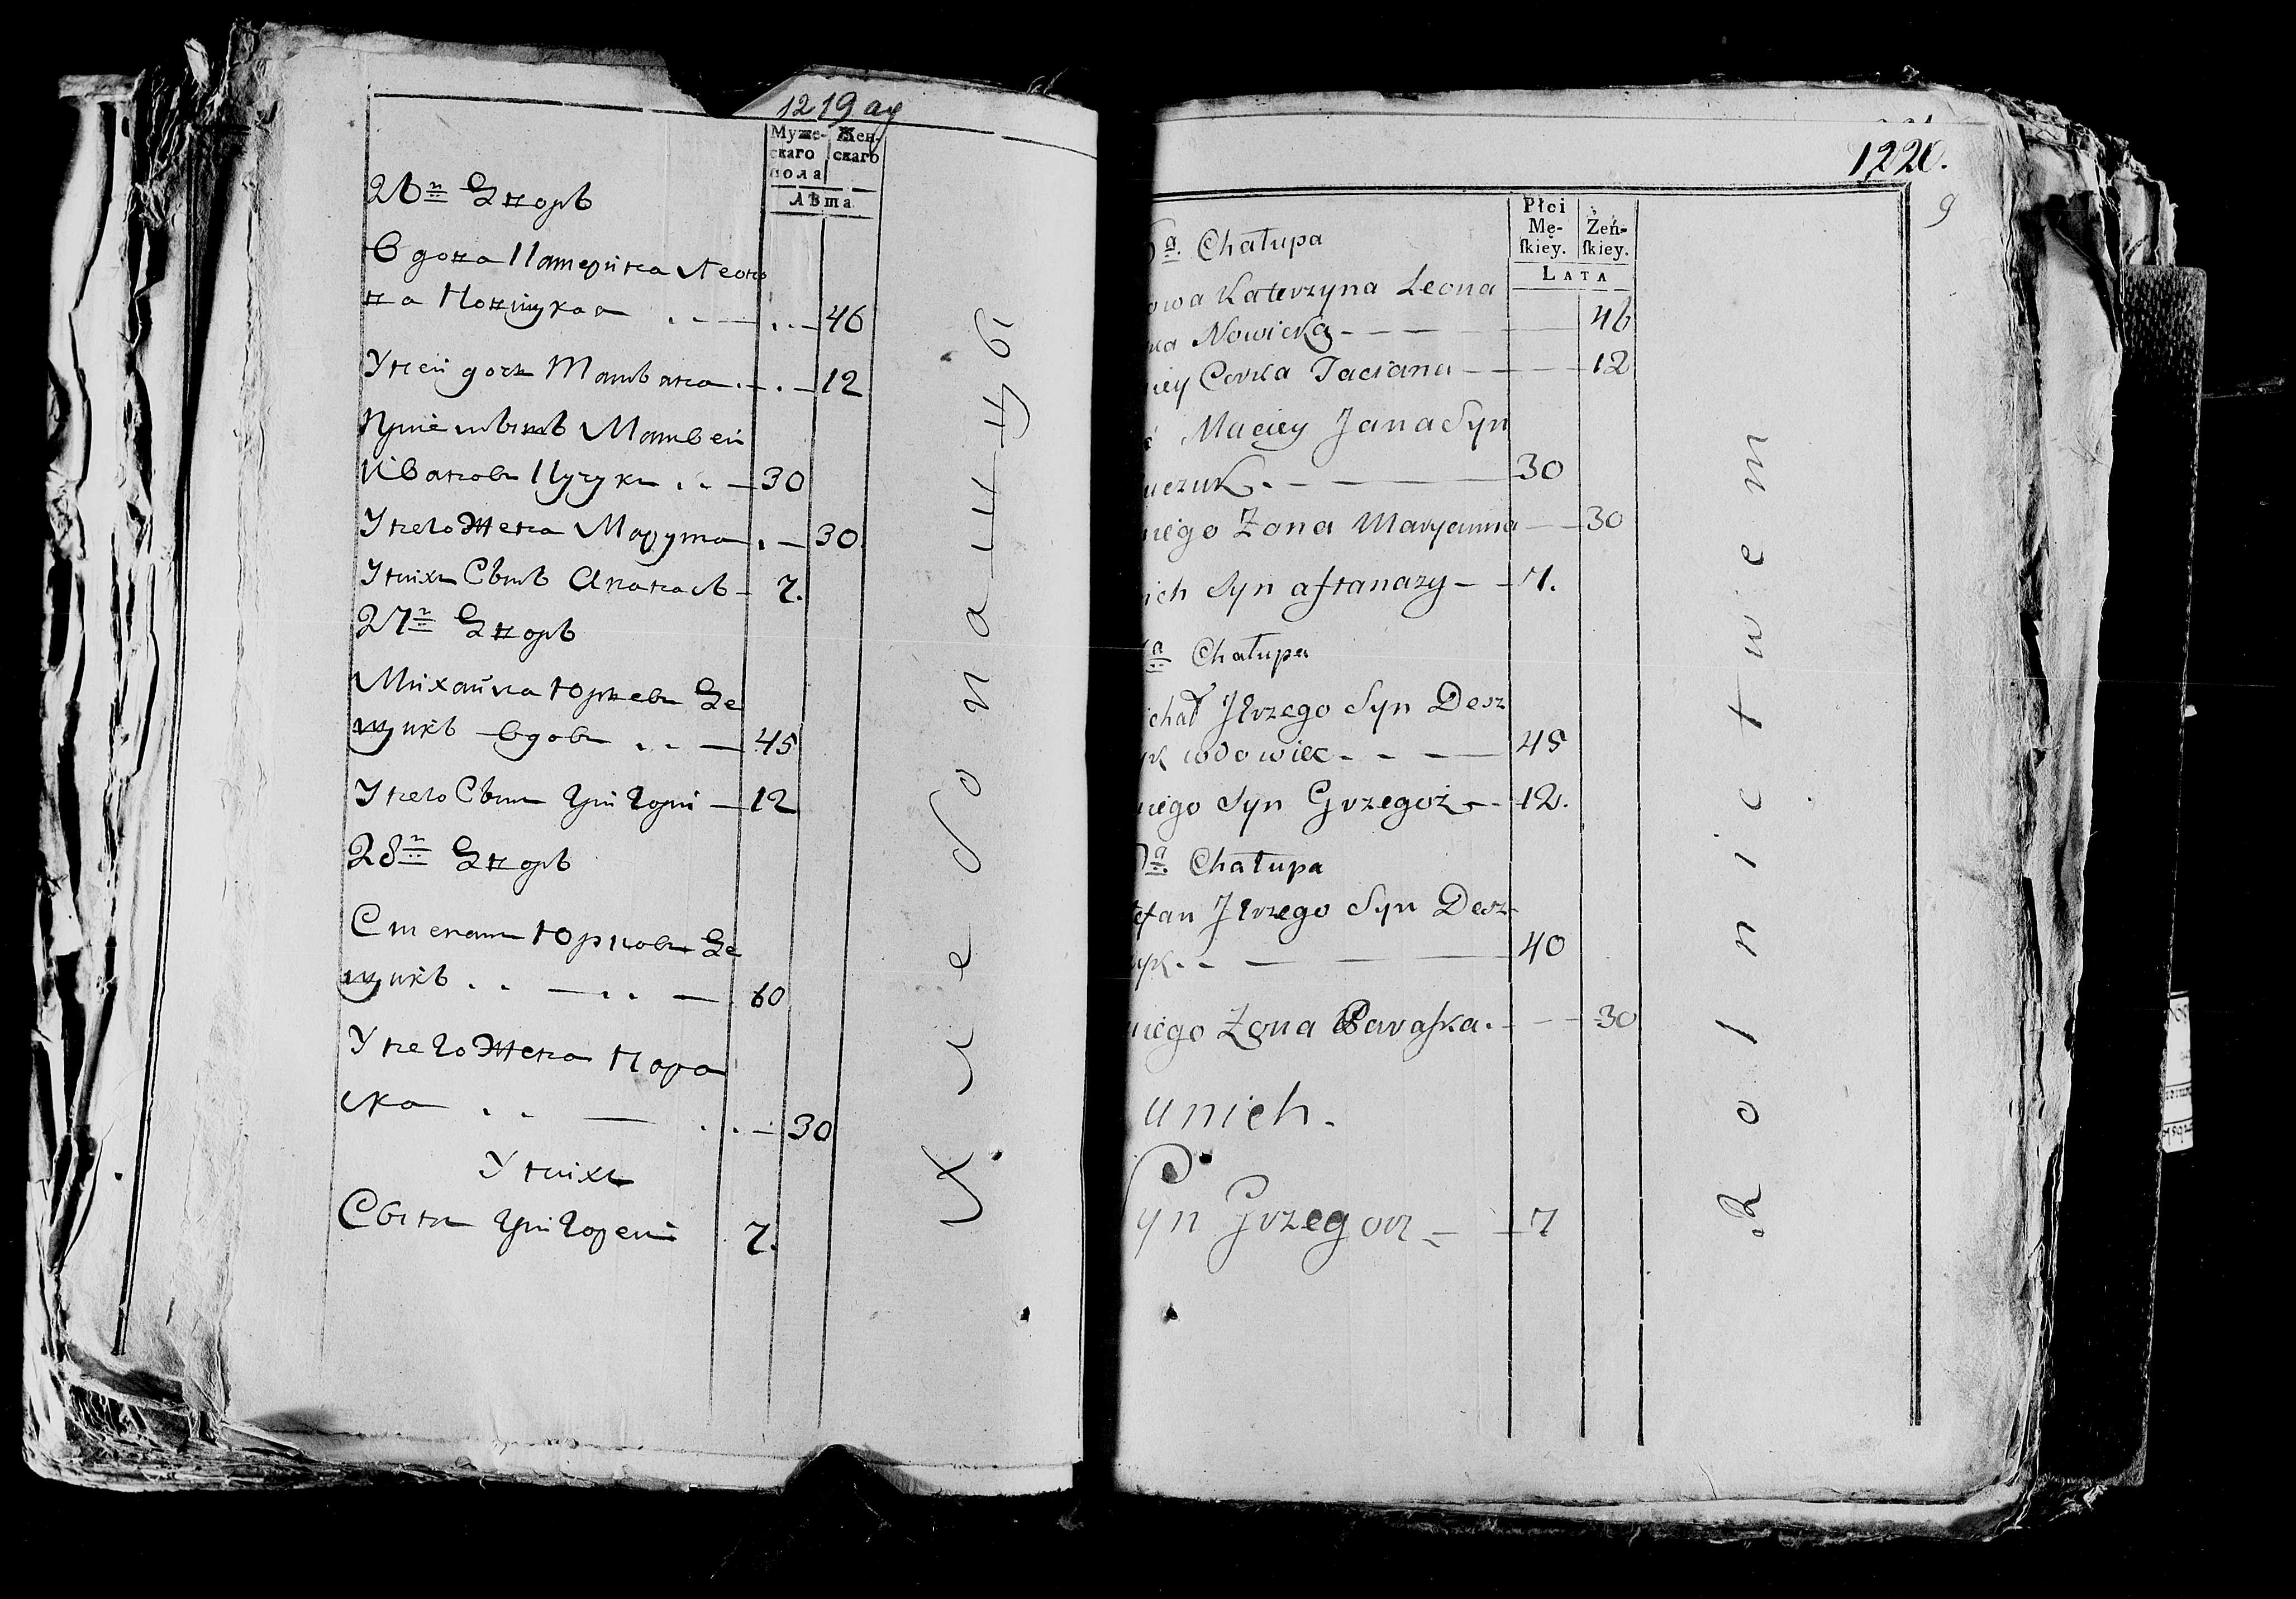 1219 ау
Муже-
скаго
пола
Жен-
скаго
Лѣта
26й Дворъ
Вдова Катерина Леоно
ва Новицкая 46
У ней дочь Татьяна 12
Матвей
Иванов 30
У него Жена Марута 30
У них Сынъ Апанасъ 7.
27й Дворъ
Михайла Юрьев Де
щикъ вдовъ 45
У него Сын Григори 12
28й Дворъ
Степан Юрьев Де
щикъ 60
У него Жена Пара
ска 30
У них
Сын Григорей 7.
Хлебопашцы
1220.
9
Płci
Mę-
ſkiey.
Żeń-
ſkiey.
LATA
a. Chałupa
owa Katerzyna Leona
wa Nowicka 46
niey Corka Taciana 12
Maciey Jana Syn
uczuk 30
niego Żona Maryanna 30
nich Syn Aftanazy 7.
a Chałupa
ichał Jerzego Syn Desz
yk wdowiec 45
niego Syn Grzegoż 12.
a. Chałupa
tefan Jerzego Syn Desz
yk 40
niego Żona Paraſka. 30
u nich.
Syn Grzegorz 7
Rolnictwem